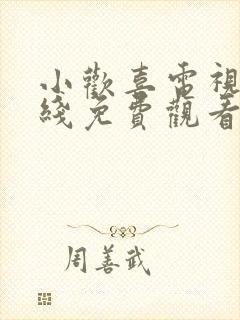 小歡喜電視
綫免費觀看
周善武